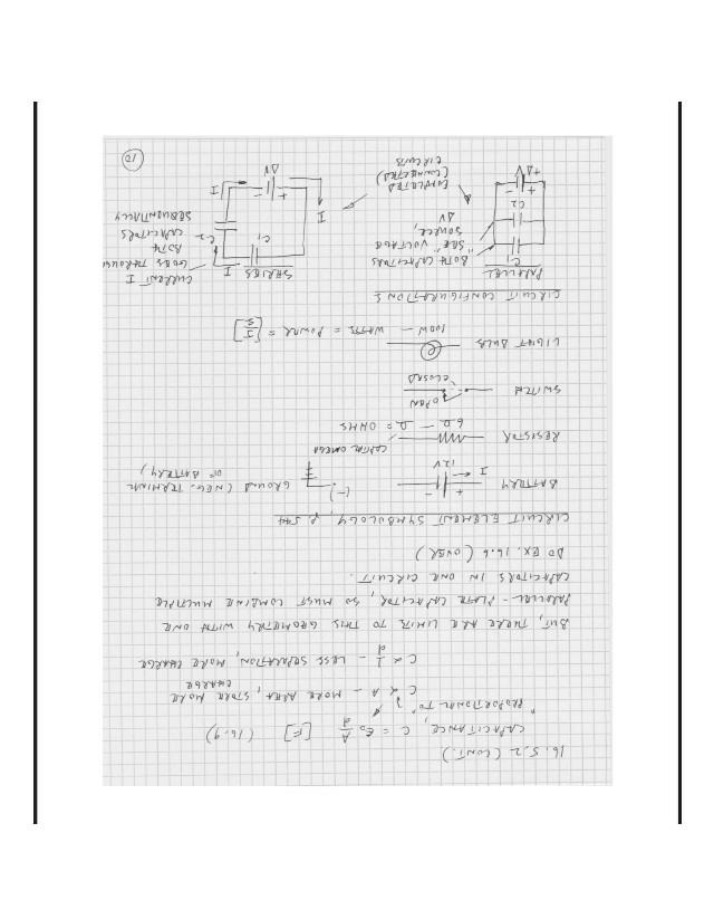 16.5.2 (CONT.)
CAPACITANCE, C = ε₀ A/d [F] (16.9)
"PROPORTIONAL TO"
C ∝ A – MORE AREA, STORE MORE CHARGE
C ∝ 1/d – LESS SEPARATION, MORE CHARGE
BUT, THERE ARE LIMITS TO THIS GEOMETRY WITH ONE
PARALLEL-PLATE CAPACITOR, SO MUST COMBINE MULTIPLE
CAPACITORS IN ONE CIRCUIT.
DO EX. 16.6 (OVER)
CIRCUIT ELEMENT SYMBOLOGY, P. 544
BATTERY + – I 12V (–) GROUND (NEG. TERMINAL OF BATTERY)
RESISTOR 6Ω – Ω = OHMS
CAPITAL OMEGA
SWITCH OPEN CLOSED
LIGHT BULB 100W – WATTS = POWER = [J/S]
CIRCUIT CONFIGURATIONS
PARALLEL
C1
C2
+ –
ΔV
BOTH CAPACITORS
"SEE" VOLTAGE
SOURCE,
ΔV
COMPLETED
(CONNECTED)
CIRCUITS
SERIES
C1
C2
I
I
I
+ –
ΔV
CURRENT I
GOES THROUGH
BOTH
CAPACITORS
SEQUENTIALLY
10